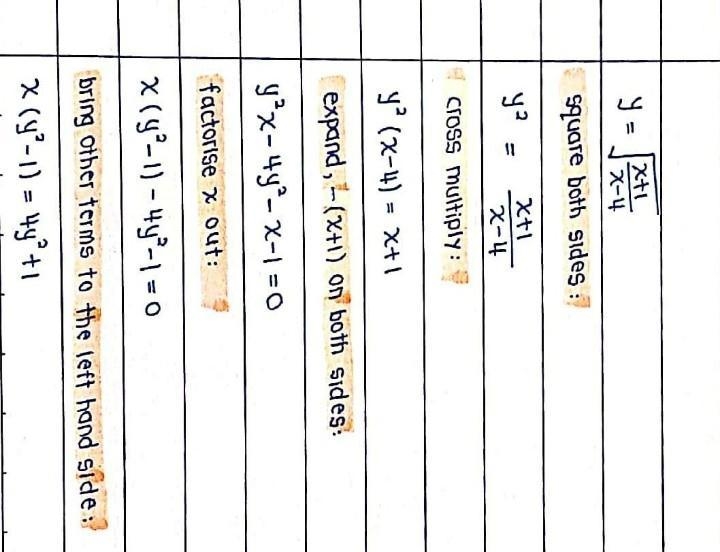 y = √(x+1)/(x-4)
square both sides:
y² = (x+1)/(x-4)
cross multiply:
y² (x-4) = x+1
expand, -(x+1) on both sides:
y²x - 4y² - x - 1 = 0
factorise x out:
x (y²-1) - 4y² - 1 = 0
bring other terms to the left hand side:
x (y²-1) = 4y² + 1